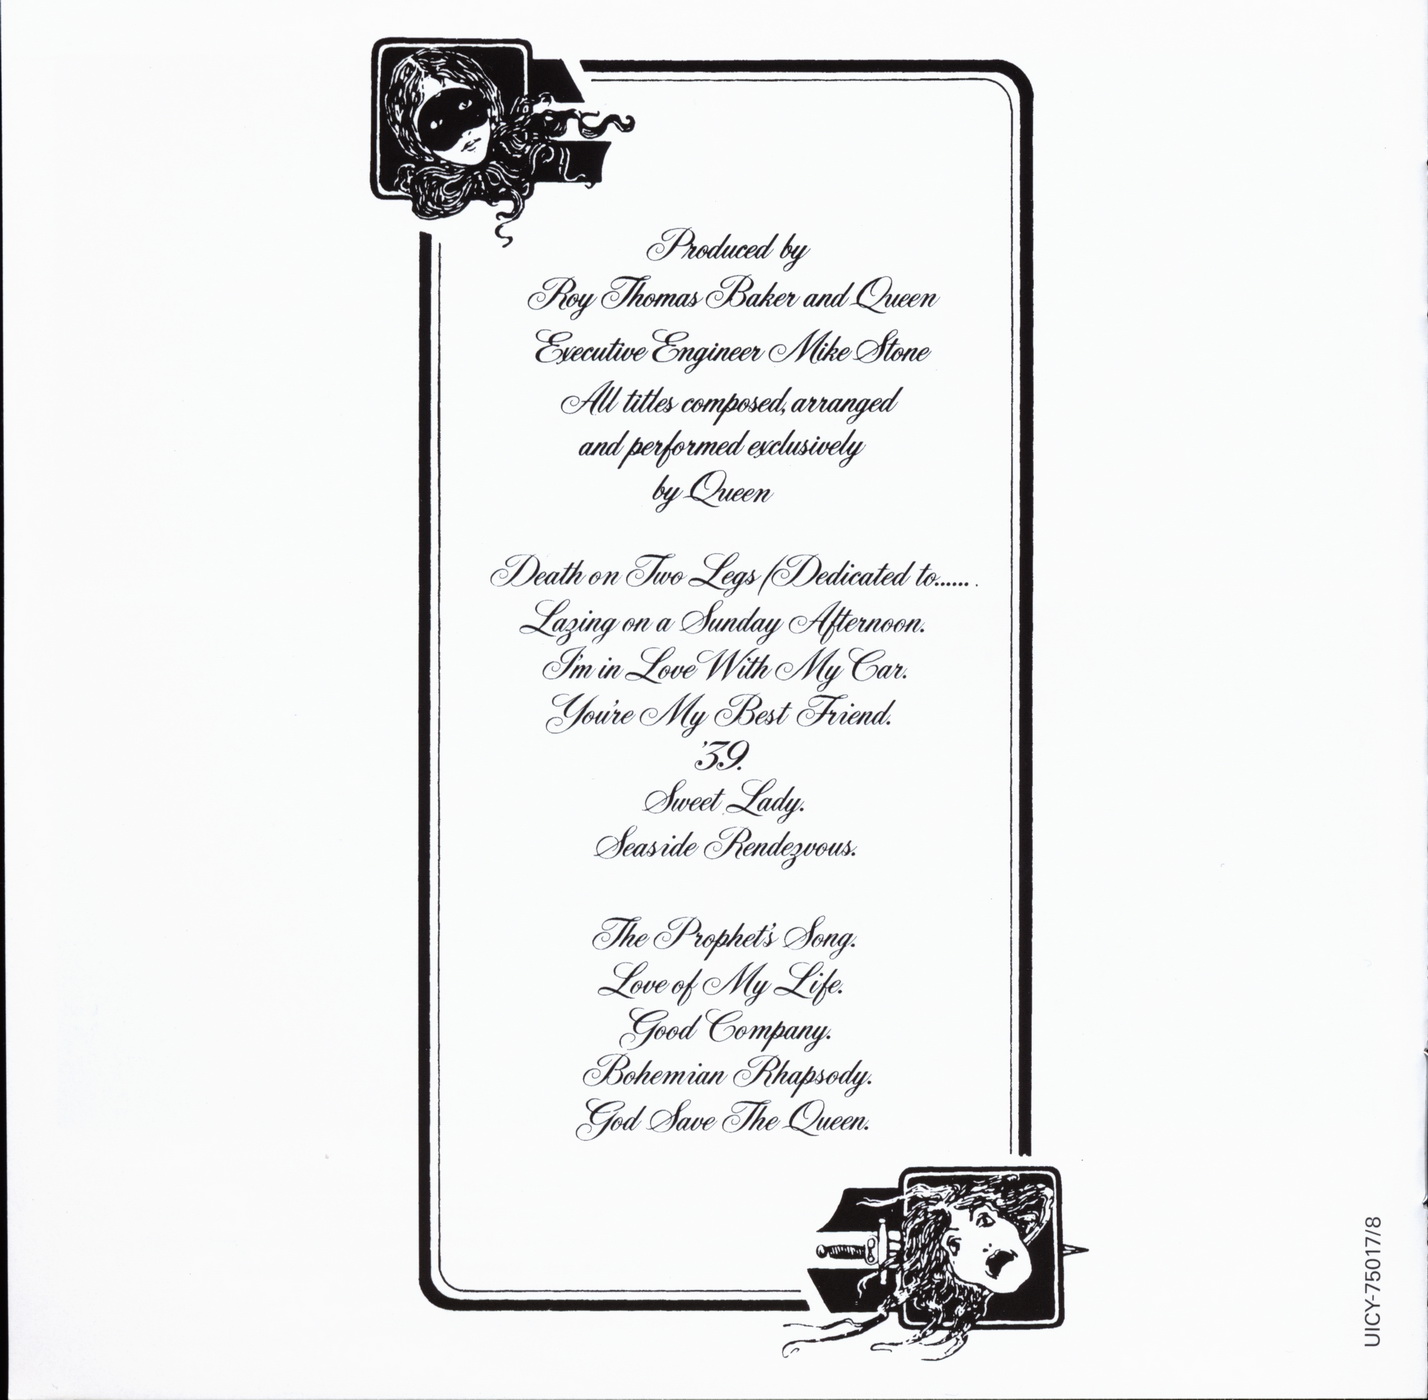 Produced by
Roy Thomas Baker and Queen
Executive Engineer Mike Stone
All titles composed, arranged
and performed exclusively
by Queen
Death on Two Legs (Dedicated to.......
Lazing on a Sunday Afternoon.
I'm in Love With My Car.
You're My Best Friend.
'39.
Sweet Lady.
Seaside Rendezvous.
The Prophet's Song.
Love of My Life.
Good Company.
Bohemian Rhapsody.
God Save The Queen.
UICY-75017/8